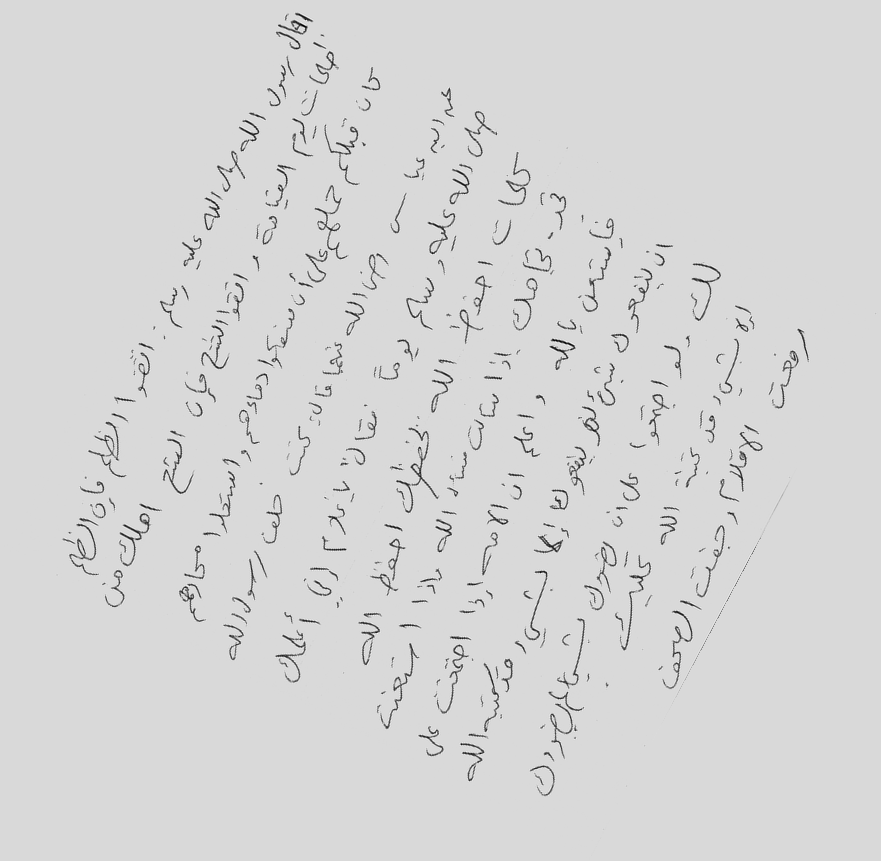 قال رسول الله صلى الله عليه وسلم : اتقوا الظلم فإن الظلم
ظلمات يوم القيامة و اتقوا الشح فإن الشح اهلك من
كان قبلكم حملهم على أن سفكوا دماءهم و استحلوا محارمهم
عبد الله عباس رضي الله عنهما قال كنت خلف رسول الله
صلى الله عليه وسلم يوماً فقال يا غلام إني أعلمك
كلمات احفظ الله يحفظك احفظ الله
تجده تجاهك إذا سألت الله فإذا استعنت
فاستعن بالله و اعلم ان الامة إذا اجتمعت على
ان ينفعوك بشيء لم ينفعوك إلا بشيء قد كتبه الله
لك و لو اجتمعوا على ان يضروك بشيء لم يضروك
إلا بشيء قد كتبه الله عليك
رفعت الاقلام وجفت الصحف